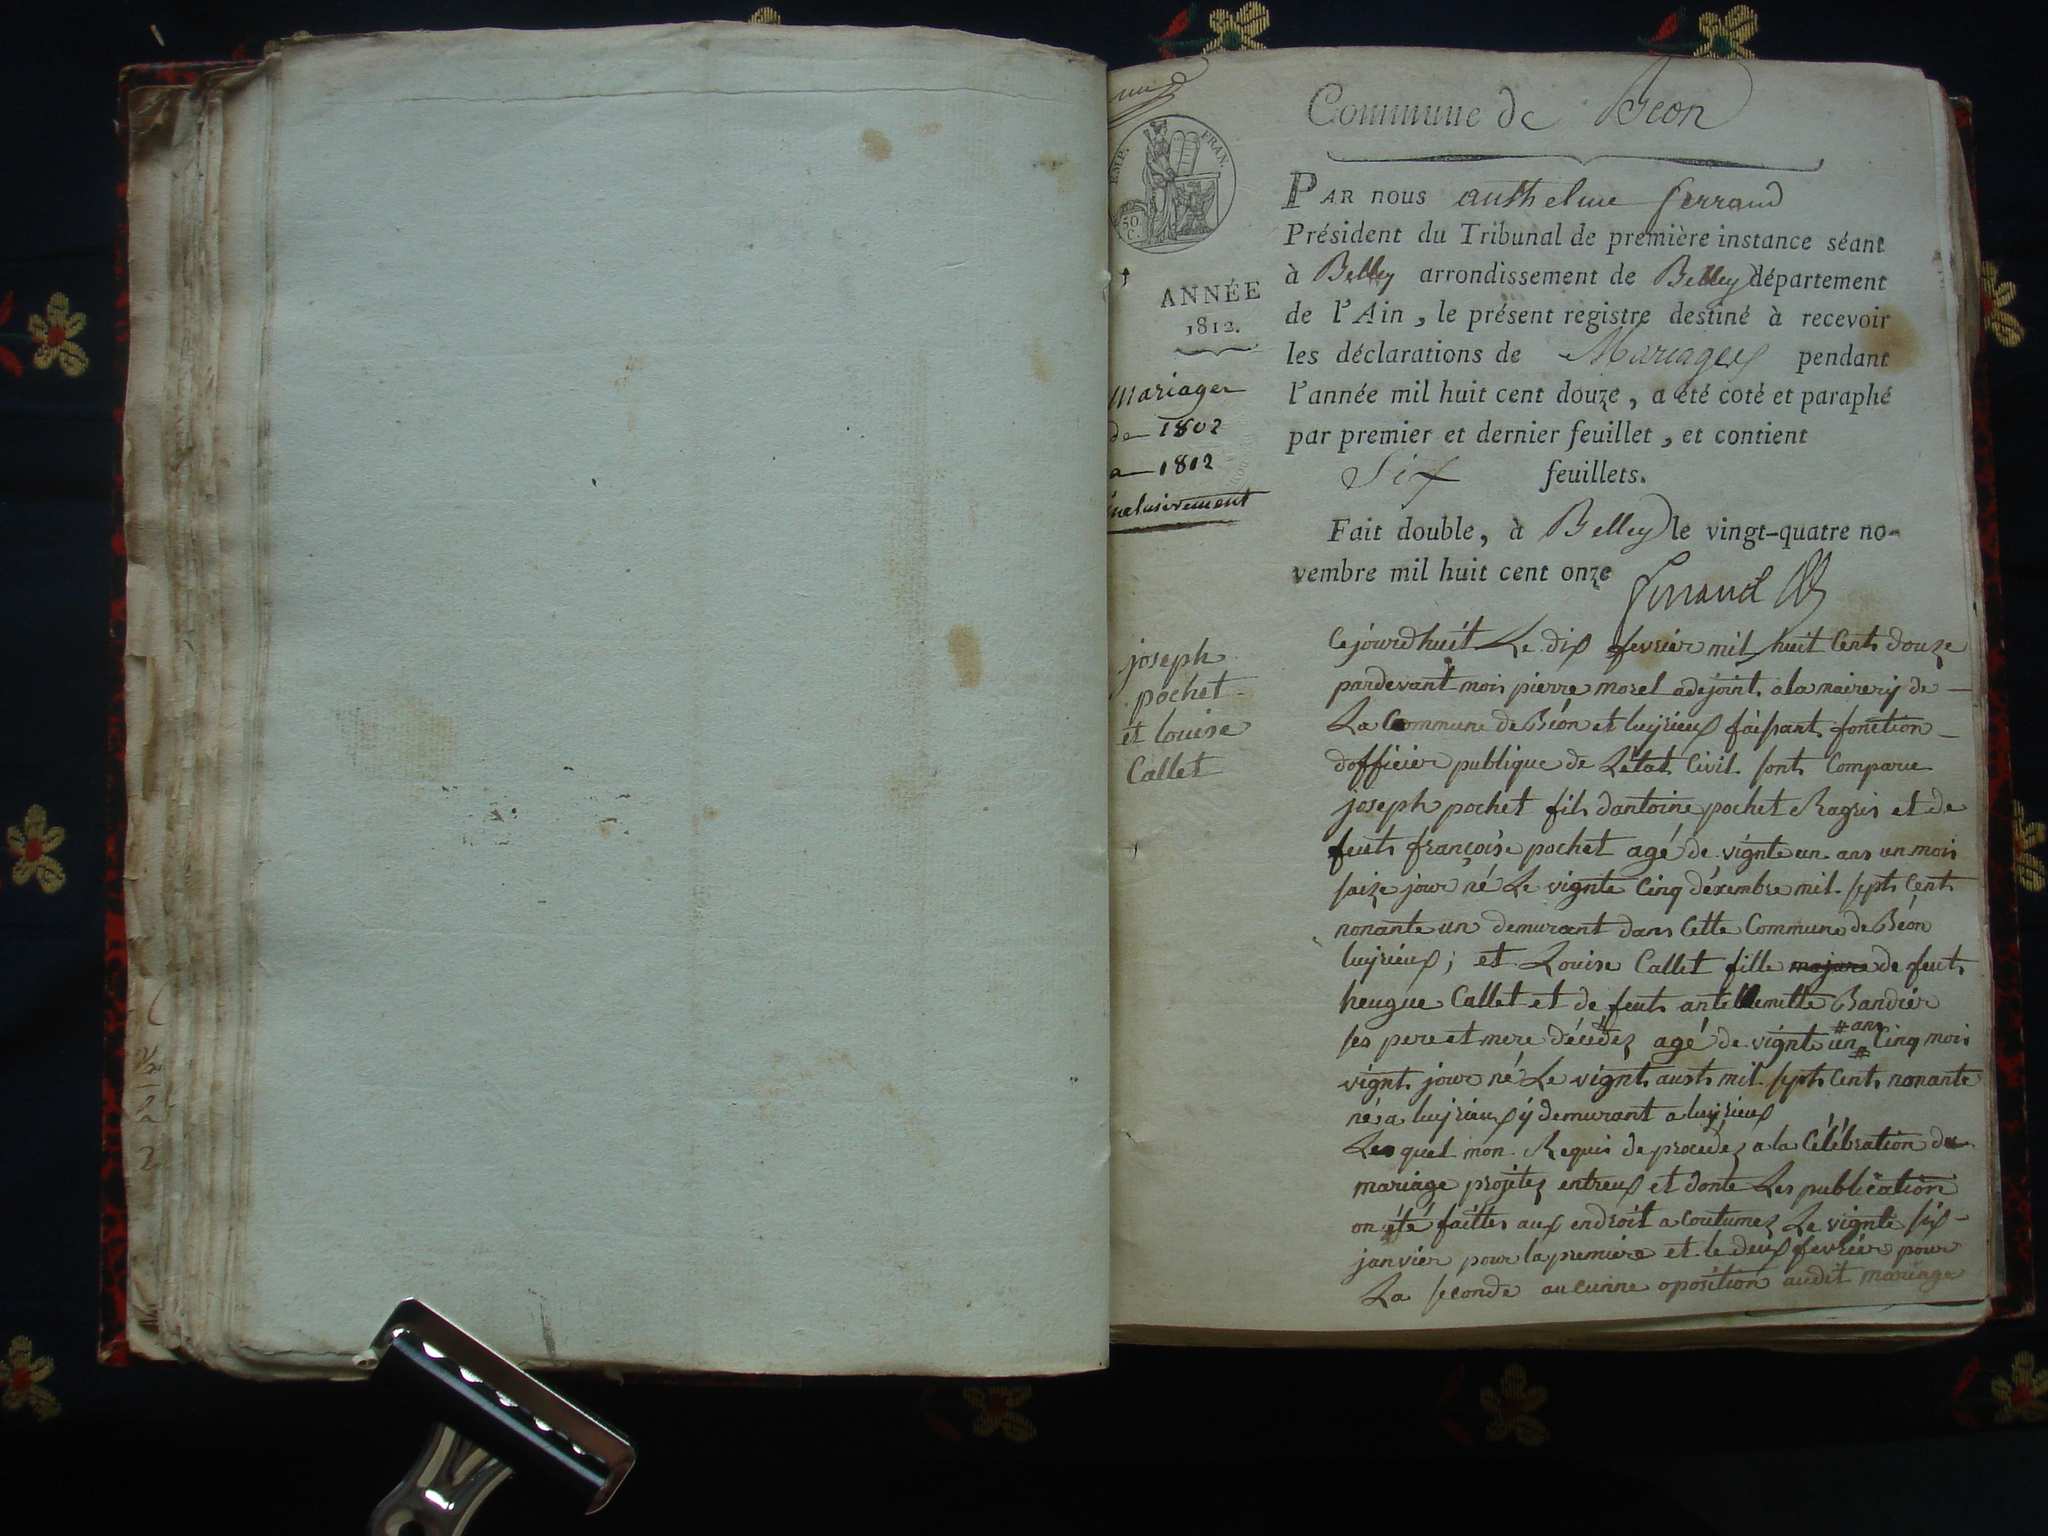 Commune de Béon
EMP. FRAN.
50
C.
PAR NOUS anthelme ferrand
Président du Tribunal de première instance séant
à Belley arrondissement de Belley département
de l'Ain, le présent registre destiné à recevoir
les déclarations de Mariages pendant
l'année mil huit cent douze, a été coté et paraphé
par premier et dernier feuillet, et contient
Six feuillets.
Fait double, à Belley le vingt-quatre no-
vembre mil huit cent onze
ferrand
ANNÉE
1812.
Mariages
de 1802
a 1812
inclusivement
joseph
pochet
et louise
Callet
Cejourdhuit Le dix fevrier mil huit Cents douze
pardevant mois pierre morel adejoint a la mairerij de
La Commune de Béon et luijrieux faisant fonction
dofficier publique de Létat Civil sont Comparu
joseph pochet fils dantoine pochet Ragris et de
feut françoise pochet agé de vignte un ans un mois
saize jour né Le vignte Cinq déxembre mil sept Cent
nonante un demurant dans Cette Commune de Béon
luijrieux; et Louise Callet fille majure de feut
heugue Callet et de feut antellemette Bandier
ses pere et mere décédez agé de vignte un # ans # Cinq mois
vignt jour né Le vignt aust mil sept Cent nonante
né a luijrieux ÿ demurant a luijrieux
Les quel mon Requis de procedez a la Célébration du
mariage projetez entreux et donte Les publication
on été faittes aux endroit a coutumez Le vignte six
janvier pour la premiere et le deux fevrier pour
La seconde aucunne oposition audit mariage